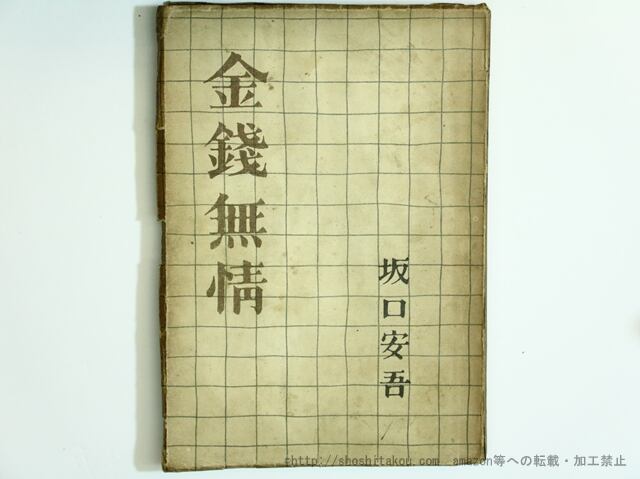 金錢無情
坂口安吾
©http://shoshitakou.com amazon等への転載・加工禁止